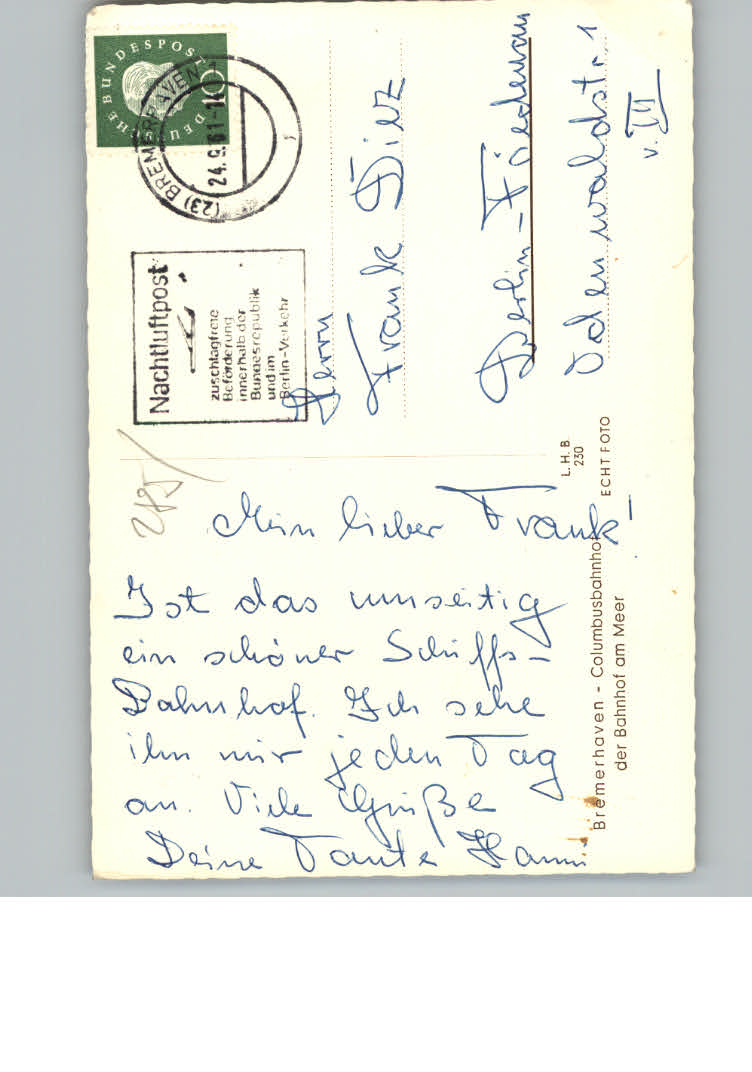 DEUTSCHE BUNDESPOST
10
(23) BREMERHAVEN 1
24.9.61-1
Nachtluftpost
zuschlagfreie
Beförderung
innerhalb der
Bundesrepublik
und im
Berlin-Verkehr
Herrn
Frank Dietz
Berlin-Friedenau
Odenwaldstr. 1
v. III
Mein lieber Frank!
Ist das umseitig
ein schöner Schiffs-
Bahnhof. Ich sehe
ihn mir jeden Tag
an. Viele Grüße
Deine Tante Hanni
L. H. B
230
ECHT FOTO
Bremerhaven - Columbusbahnhof
der Bahnhof am Meer